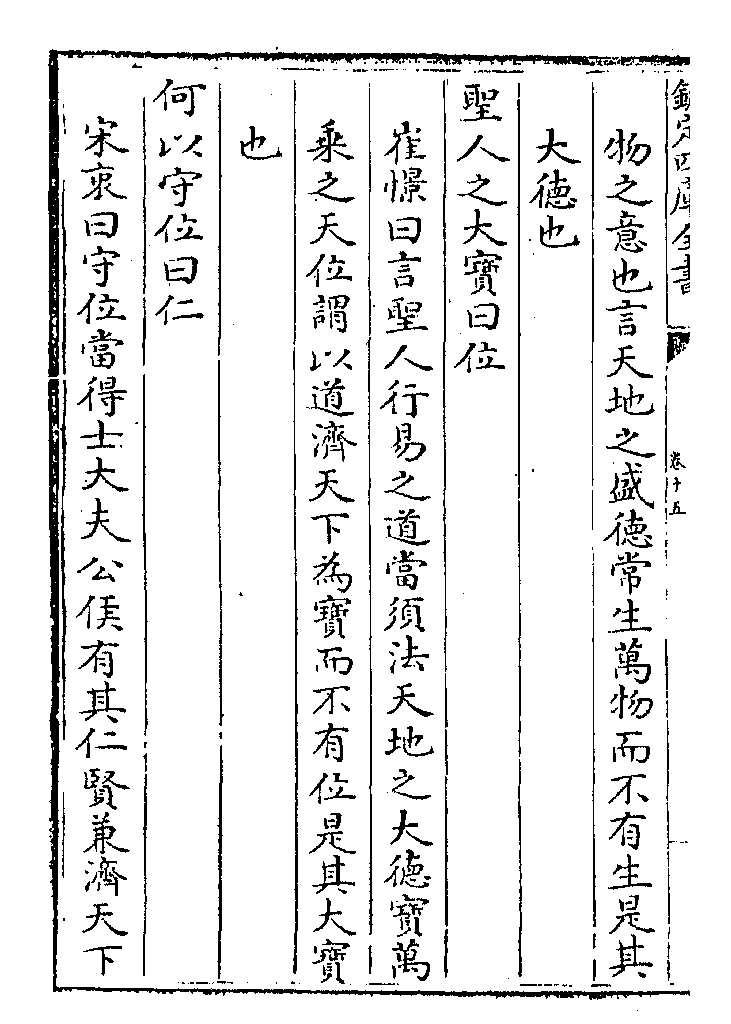 欽定四庫全書
卷十五
物之意也言天地之盛德常生萬物而不有生是其
大德也
聖人之大寶曰位
崔憬曰言聖人行易之道當須法天地之大德寶萬
乘之天位謂以道濟天下為寶而不有位是其大寶
也
何以守位曰仁
宋衷曰守位當得士大夫公侯有其仁賢兼濟天下